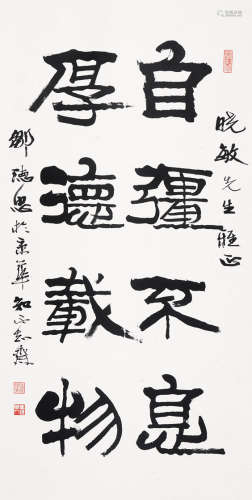 晓敏先生雅正
自彊不息
厚德載物
鄒德忠於京華知不知齋